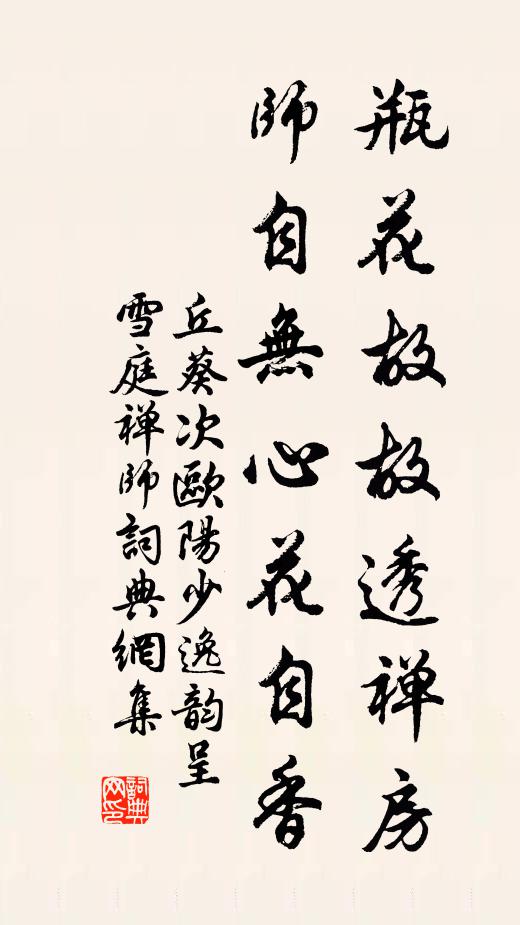 瓶花故故透禅房
師自無心花自香
丘葵次歐陽少逸韵呈
雪庭禅師詞典網集
詞典网印